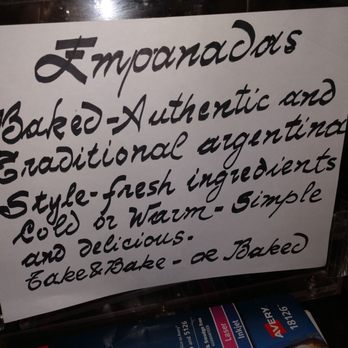 Empanadas
Baked-Authentic and
Traditional argentina
Style-fresh ingredients
Cold or Warm-Simple
and delicious.
Take&Bake-or Baked
Laser
Inkjet
AVERY
18126